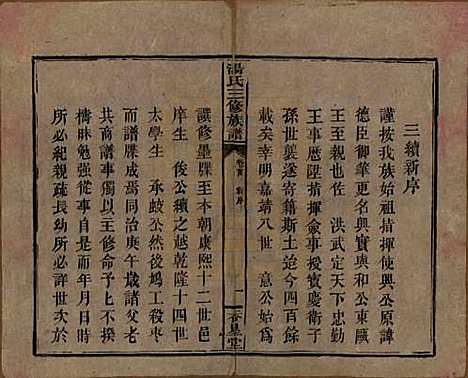 三續新序
謹按我族始祖指揮使興公原諱
德臣御筆更名興實與和公東甌
王至親也佐 洪武定天下忠勤
王事歷陞指揮僉事授寶慶衛子
孫世襲遂寄籍斯土迨今四百餘
載矣幸明嘉靖八世 意公始爲
湯氏三修族譜
卷首 新序
一
譔修墨牒至本朝康熙十二世邑
庠生 俊公續之越乾隆十四世
太學生 承鼓公然後鳩工殺棗
而譜牒成焉同治庚午歲諸父老
共商譜事僅以三修命予上不揆
檮昧勉强從事自而年月日時
所必紀親疏長幼所必詳世次於